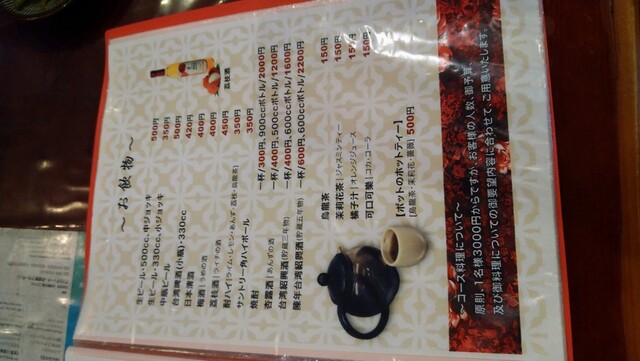 ～お飲物～
生ビール・500cc、中ジョッキ 500円
生ビール・330cc、小ジョッキ 350円
中瓶ビール 500円
台湾啤酒(小瓶)・330cc 420円
日本清酒 400円
梅酒|うめの酒 400円
荔枝酒|ライチの酒 400円
酎ハイ(ライム・レモン・あんず・荔枝・烏龍茶) 450円
サントリー角ハイボール 350円
焼酎 350円
荔枝酒
一杯/300円、900ccボトル/2000円
杏露酒|あんずの酒 一杯/400円、500ccボトル/1200円
台湾紹興酒(貯蔵三年物) 一杯/400円、600ccボトル/1600円
陳年台湾紹興酒(貯蔵五年物) 一杯/600円、600ccボトル/2200円
烏龍茶 150円
茉莉花茶|ジャスミンティー 150円
橘子汁|オレンジジュース 150円
可口可樂|コカ・コーラ 150円
【ポットのホットティー】 500円
(烏龍茶・茉莉花・薔薇)
～コース料理について～
原則、1名様3000円からですが、お客様の人数、御予算、
及び御料理についての御要望内容に合わせて、ご用意いたします。